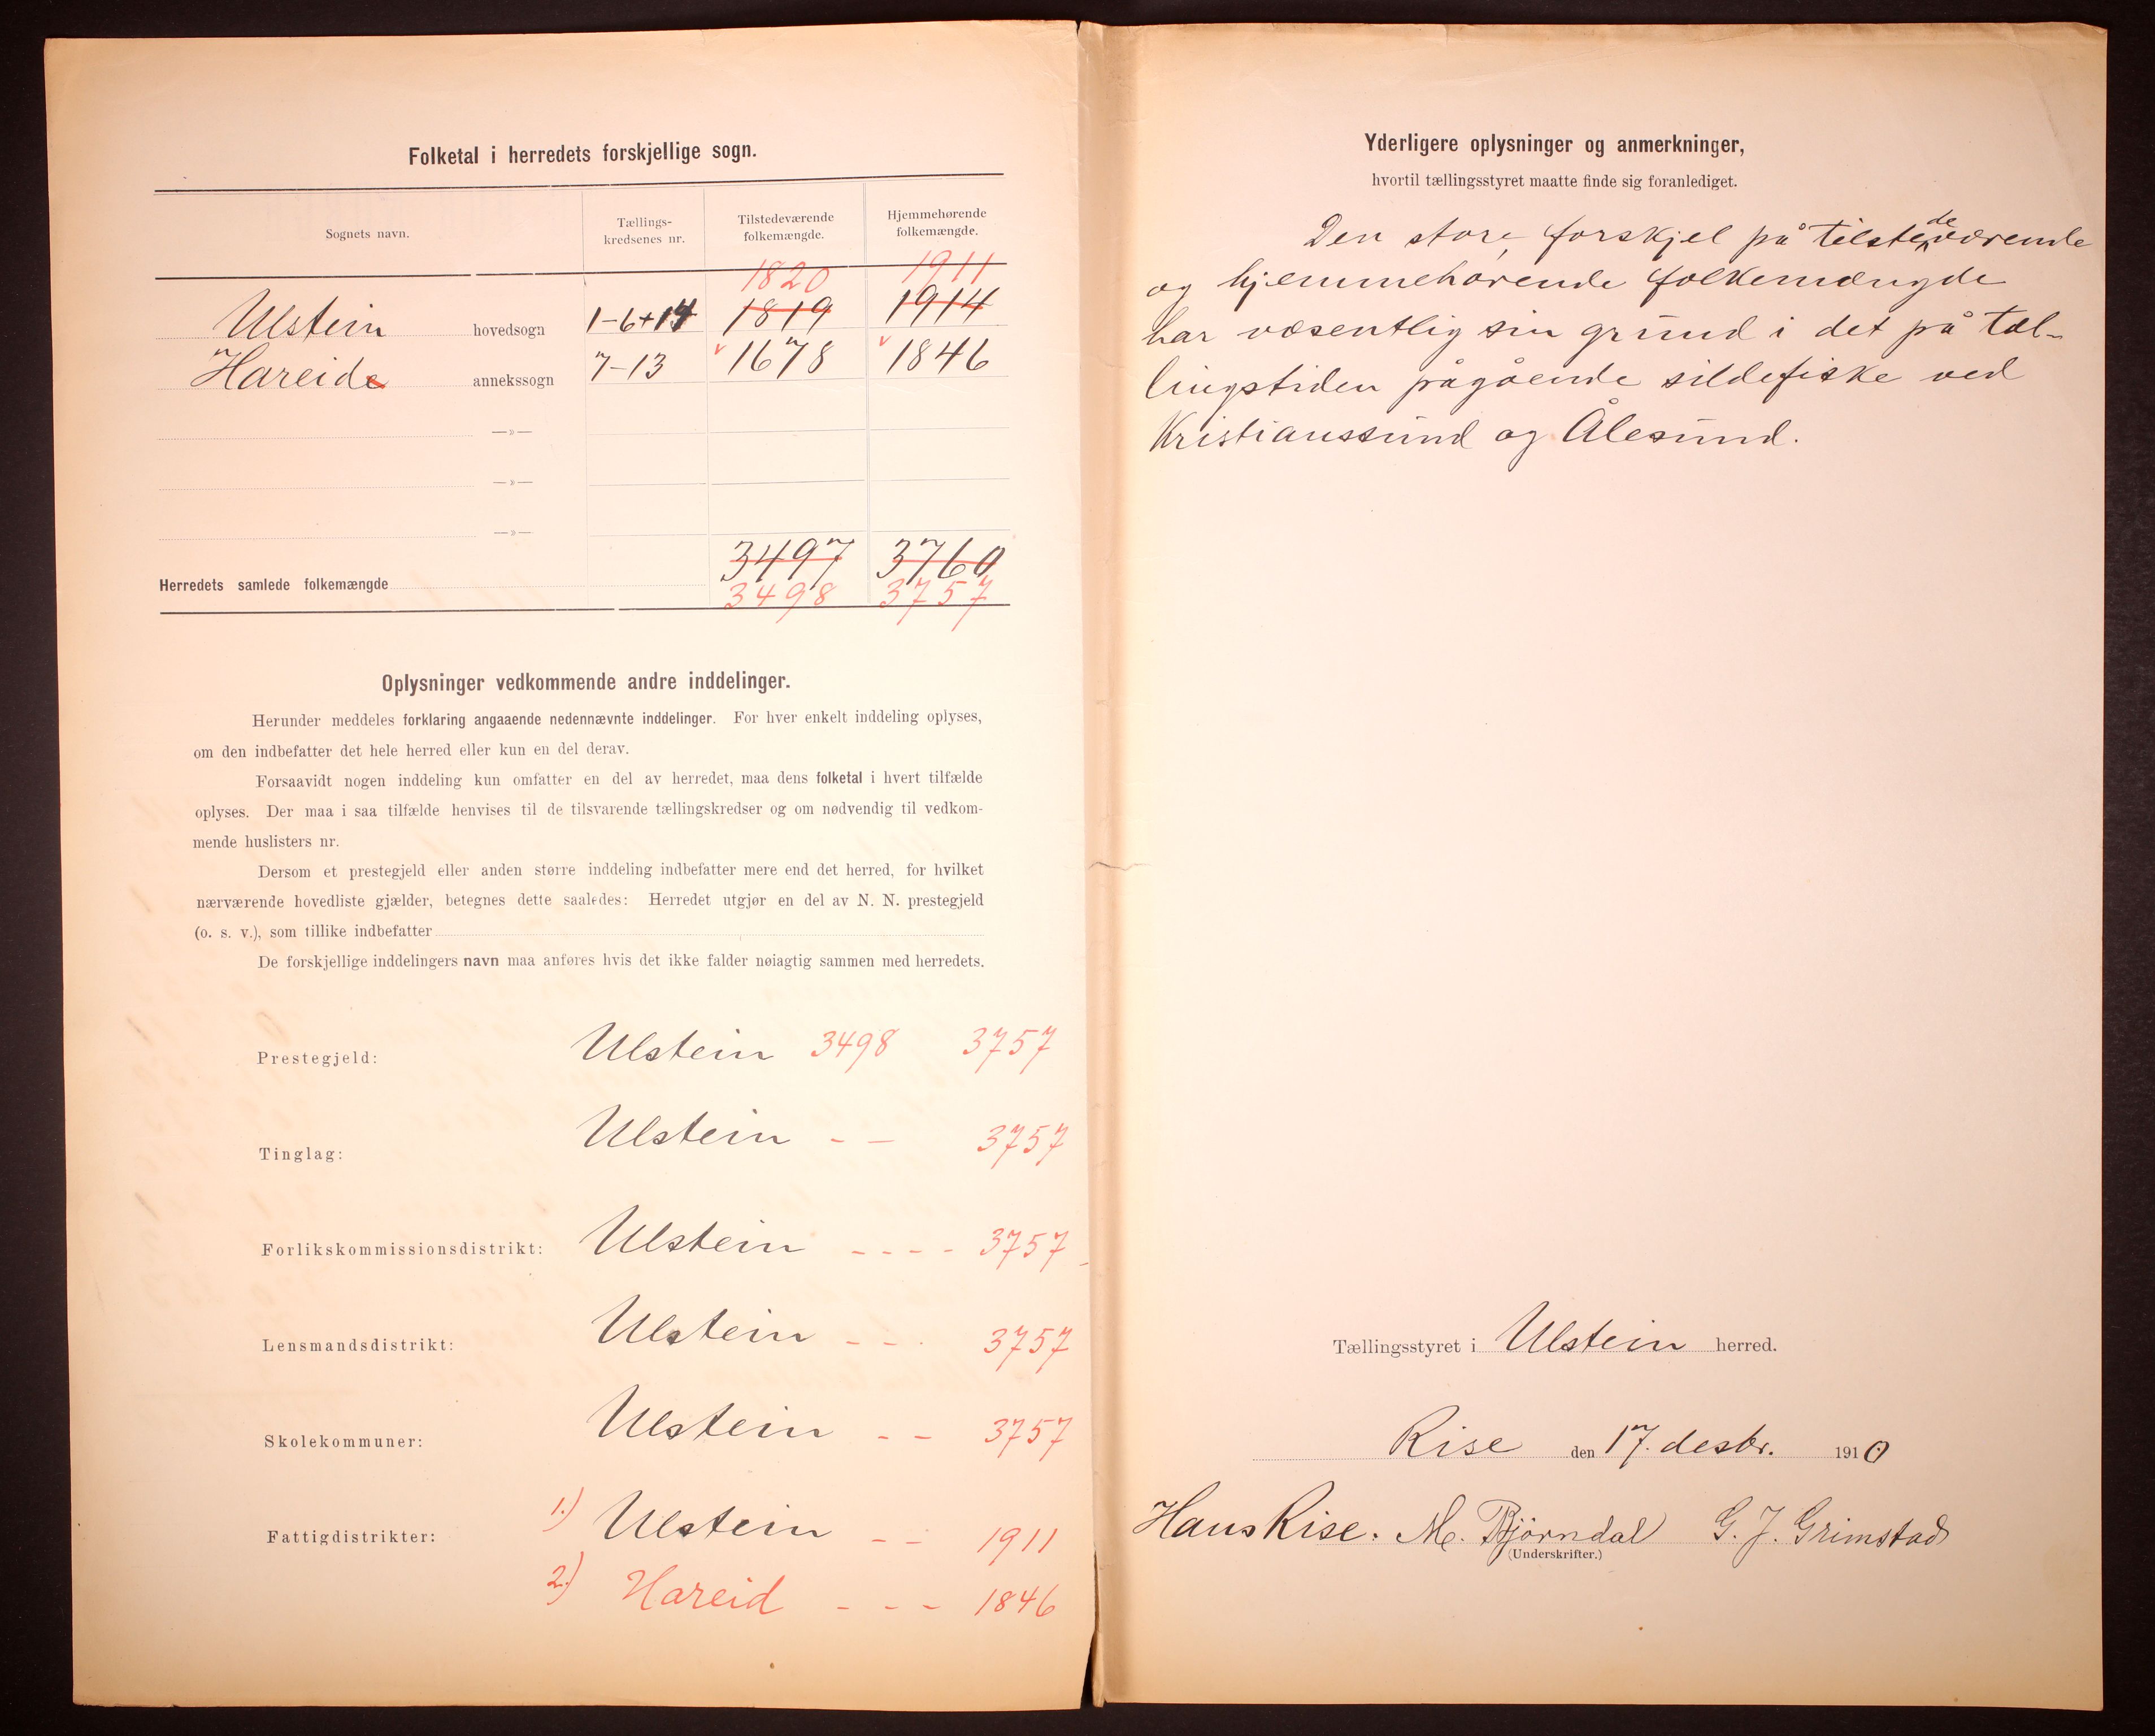 Folketal i herredets forskjellige sogn.
Sognets navn.
Tællings-
kredsenes nr.
Tilstedeværende
folkemængde.
Hjemmehørende
folkemængde.
1820 1911
Ulstein hovedsogn 1-6+14 1819 1914
Hareide annekssogn 7-13 v 1678 v 1846
—»—
—»—
—»—
3497 3760
Herredets samlede folkemængde
3498 3757
Oplysninger vedkommende andre inddelinger.
Herunder meddeles forklaring angaaende nedennævnte inddelinger. For hver enkelt inddeling oplyses,
om den indbefatter det hele herred eller kun en del derav.
Forsaavidt nogen inddeling kun omfatter en del av herredet, maa dens folketal i hvert tilfælde
oplyses. Der maa i saa tilfælde henvises til de tilsvarende tællingskredser og om nødvendig til vedkom-
mende huslisters nr.
Dersom et prestegjeld eller anden større inddeling indbefatter mere end det herred, for hvilket
nærværende hovedliste gjælder, betegnes dette saaledes: Herredet utgjør en del av N. N. prestegjeld
(o. s. v.), som tillike indbefatter
De forskjellige inddelingers navn maa anføres hvis det ikke falder nøiagtig sammen med herredets.
Prestegjeld: Ulstein 3498 3757
Tinglag: Ulstein - — 3757
Forlikskommissionsdistrikt: Ulstein - - - - 3757
Lensmandsdistrikt: Ulstein - - . 3757
Skolekommuner: Ulstein - - 3757
Fattigdistrikter: 1.) Ulstein - - 1911
2.) Hareid - - - 1846
Yderligere oplysninger og anmerkninger,
hvortil tællingsstyret maatte finde sig foranlediget.
Den store forskjel på tilstedeværende
og hjemmehørende folkemængde
har væsentlig sin grund i det på tæl-
lingstiden pågående sildefiske ved
Kristianssund og Ålesund.
Tællingsstyret i Ulstein herred.
Rise den 17. desbr. 1910
Hans Rise. M. Bjørndal G. J. Grimstad
(Underskrifter.)